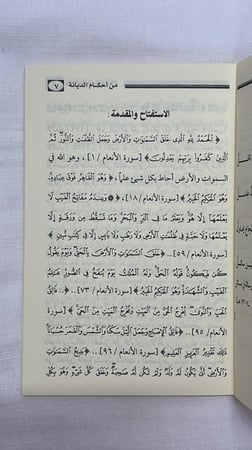 من أحكام الديانة ٧
الاستفتاح والمقدمة :
﴿ الْحَمْدُ لِلَّهِ الَّذِي خَلَقَ السَّمَوَاتِ وَالْأَرْضَ وَجَعَلَ الظُّلُمَاتِ وَالنُّورَ ثُمَّ
الَّذِينَ كَفَرُوا بِرَبِّهِمْ يَعْدِلُونَ﴾ [سورة الأنعام / ١] ، وهو الله في
السموات والأرض أحاط بكل شيء علما ، ﴿ وَهُوَ الْقَاهِرُ فَوْقَ عِبَادِهِ
وَهُوَ الْحَكِيمُ الْخَبِيرُ ﴾ [سورة الأنعام / ١٨] ، ﴿ وَعِندَهُ مَفَاتِحُ الْغَيْبِ لَا
يَعْلَمُهَا إِلَّا هُوَ وَيَعْلَمُ مَا فِي الْبَرِّ وَالْبَحْرِ وَمَا تَسْقُطُ مِن وَرَقَةٍ إِلَّا
يَعْلَمُهَا وَلَا حَبَّةٍ فِي ظُلُمَاتِ الْأَرْضِ وَلَا رَطْبٍ وَلَا يَابِسٍ إِلَّا فِي كِتَابٍ مُّبِينٍ ﴾
[سورة الأنعام / ٥٩] .. ﴿ خَلَقَ السَّمَوَاتِ وَالْأَرْضَ بِالْحَقِّ وَيَوْمَ يَقُولُ
كُن فَيَكُونُ قَوْلُهُ الْحَقُّ وَلَهُ الْمُلْكُ يَوْمَ يُنفَخُ فِي الصُّورِ عَالِمُ
الْغَيْبِ وَالشَّهَادَةِ وَهُوَ الْحَكِيمُ الْخَبِيرُ ﴾ [سورة الأنعام / ٧٣] .. ﴿ فَالِقُ
الْحَبِّ وَالنَّوَى يُخْرِجُ الْحَيَّ مِنَ الْمَيِّتِ وَمُخْرِجُ الْمَيِّتِ مِنَ الْحَيِّ ﴾ [سورة الأنعام
/ ٩٥] .. ﴿ فَالِقُ الْإِصْبَاحِ وَجَعَلَ اللَّيْلَ سَكَنًا وَالشَّمْسَ وَالْقَمَرَ حُسْبَانًا
ذَلِكَ تَقْدِيرُ الْعَزِيزِ الْعَلِيمِ ﴾ [سورة الأنعام / ٩٦] .. ﴿ بَدِيعُ السَّمَوَاتِ
وَالْأَرْضِ أَنَّى يَكُونُ لَهُ وَلَدٌ وَلَمْ تَكُن لَّهُ صَاحِبَةٌ وَخَلَقَ كُلَّ شَيْءٍ وَهُوَ بِكُلِّ